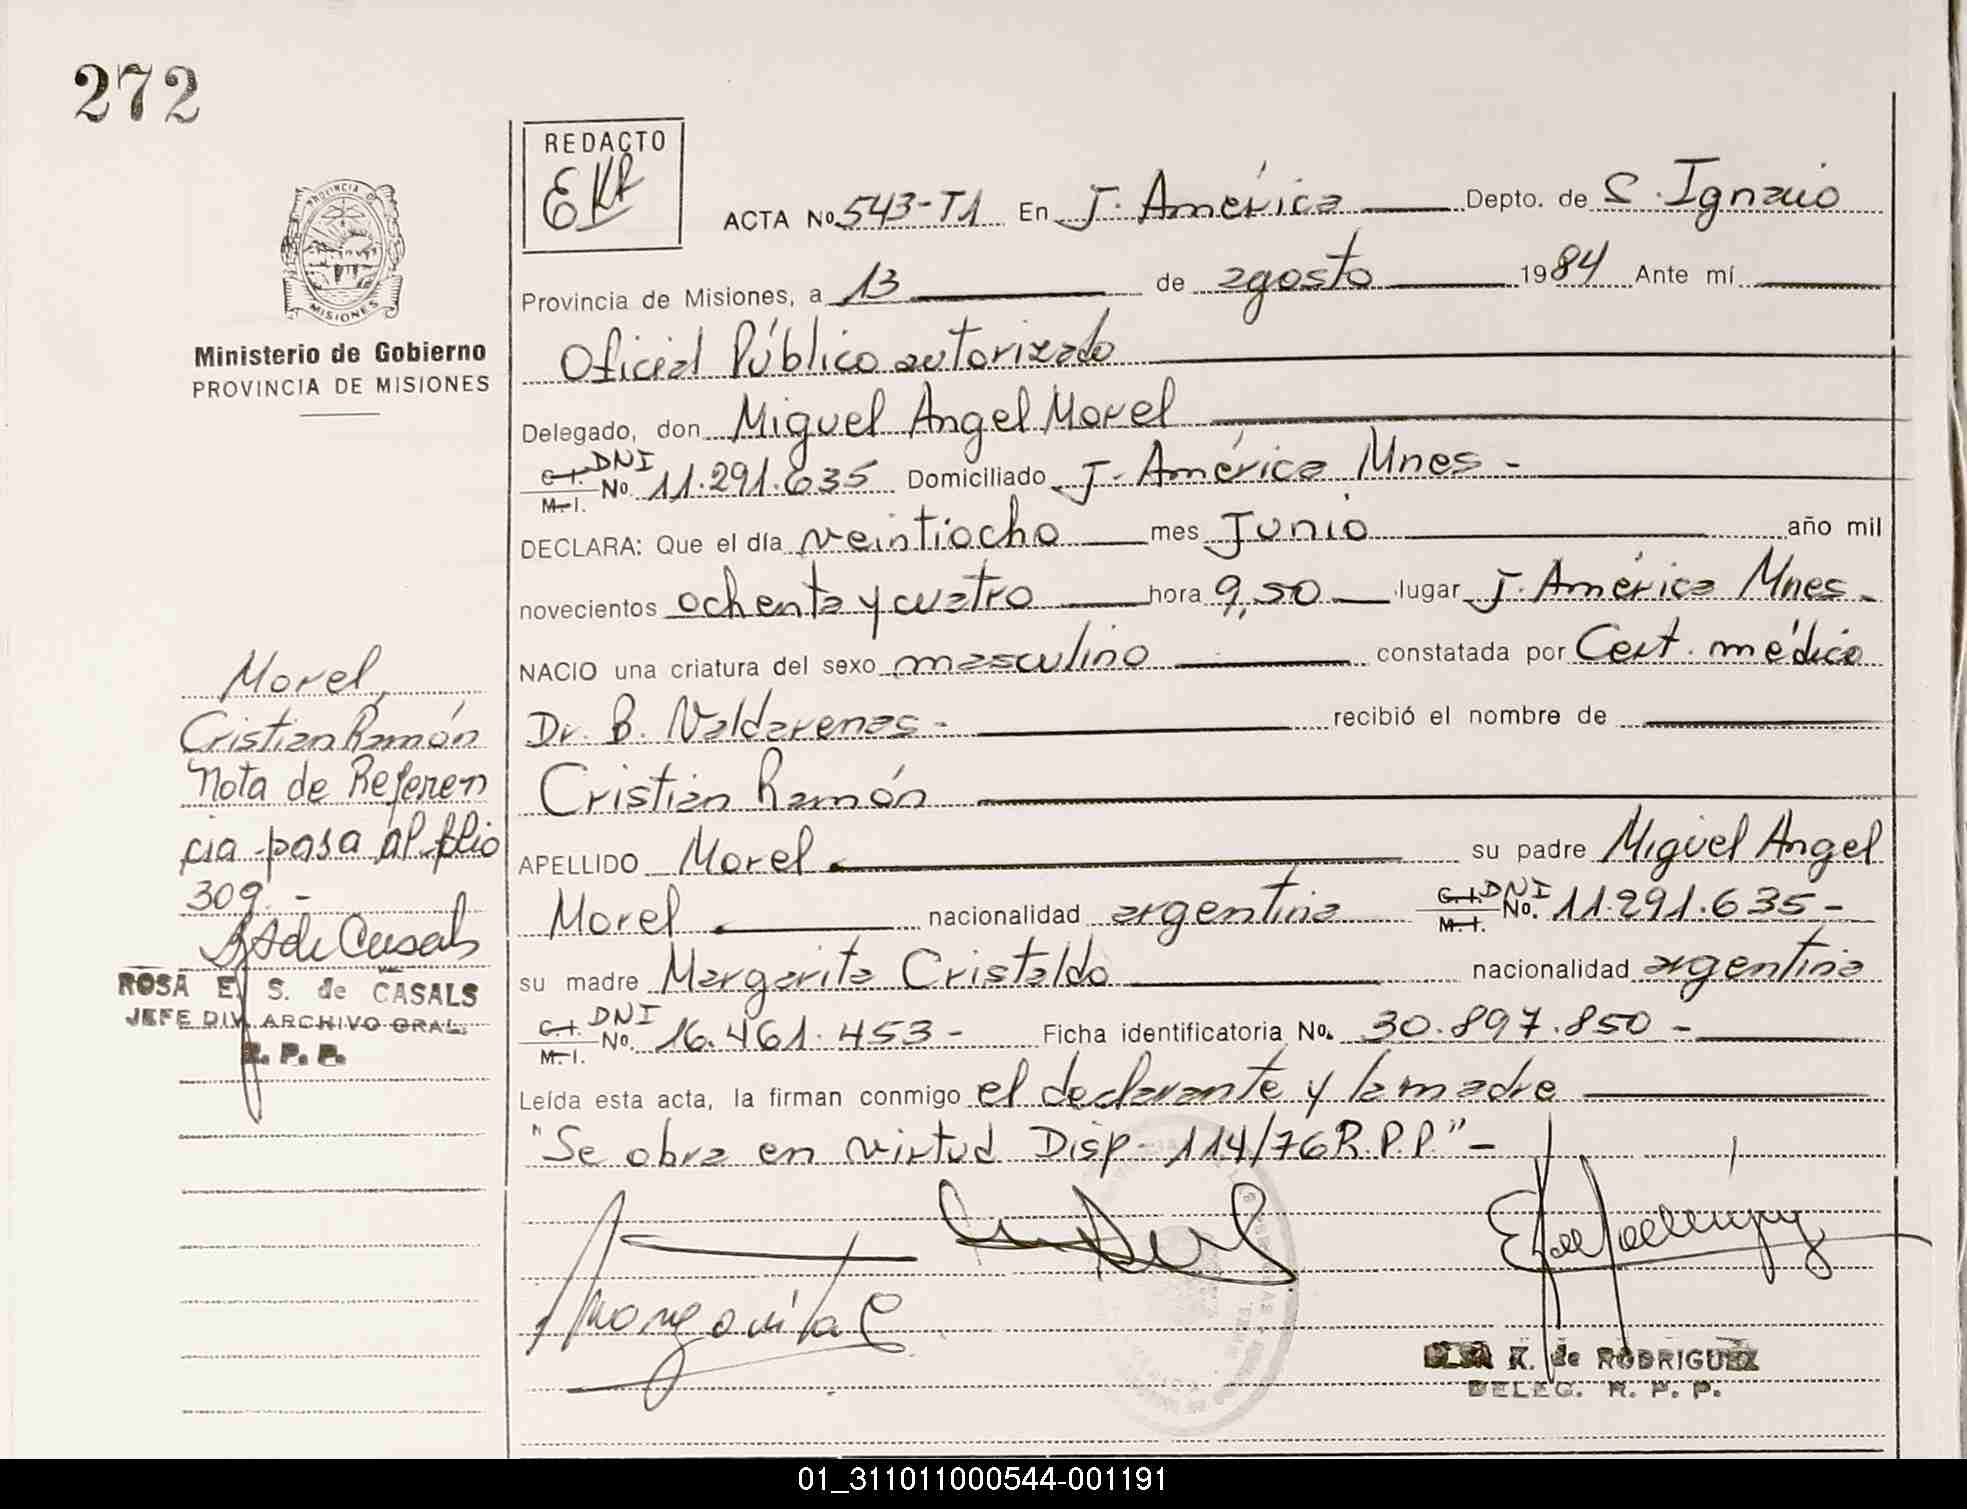 272
REDACTO
EKR
PROVINCIA DE
MISIONES
Ministerio de Gobierno
PROVINCIA DE MISIONES
ACTA No. 543-T1 En J. América Depto. de S. Ignacio
Provincia de Misiones, a 13 de agosto 1984 Ante mí
Oficial Público autorizado
Delegado, don Miguel Angel Morel
C.I. DNI
M.I. No. 11.291.635 Domiciliado J. América Mnes -
DECLARA: Que el día veintiocho mes Junio año mil
novecientos ochenta y cuatro hora 9,50 lugar J. América Mnes -
NACIO una criatura del sexo masculino constatada por Cert. médico
Dr. B. Valdarenas - recibió el nombre de
Cristian Ramón
APELLIDO Morel su padre Miguel Angel
Morel nacionalidad argentina C.I. DNI M.I. No. 11.291.635 -
su madre Margarita Cristaldo nacionalidad argentina
C.I. DNI
M.I. No. 16.461.453 - Ficha identificatoria No. 30.897.850 -
Leída esta acta, la firman conmigo el declarante y la madre
"Se obra en virtud Disp - 114/76 R.P.P." -
Margarita C
K. de RODRIGUEZ
DELEG. R. P. P.
Morel,
Cristian Ramón
Nota de Referen
cia pasa al folio
309. -
ROSA E. S. de CASALS
JEFE DIV. ARCHIVO GRAL.
R. P. P.
01_311011000544-001191